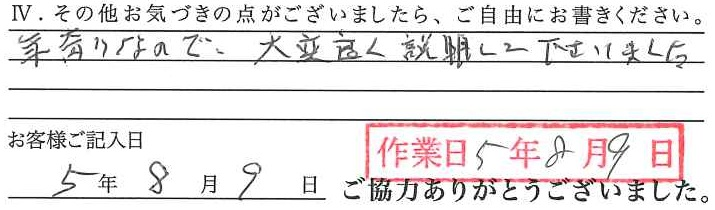 Ⅳ．その他お気づきの点がございましたら、ご自由にお書きください。
年寄りなので、大変良く説明して下さいました
お客様ご記入日
作業日5年8月9日
5年8月9日
ご協力ありがとうございました。